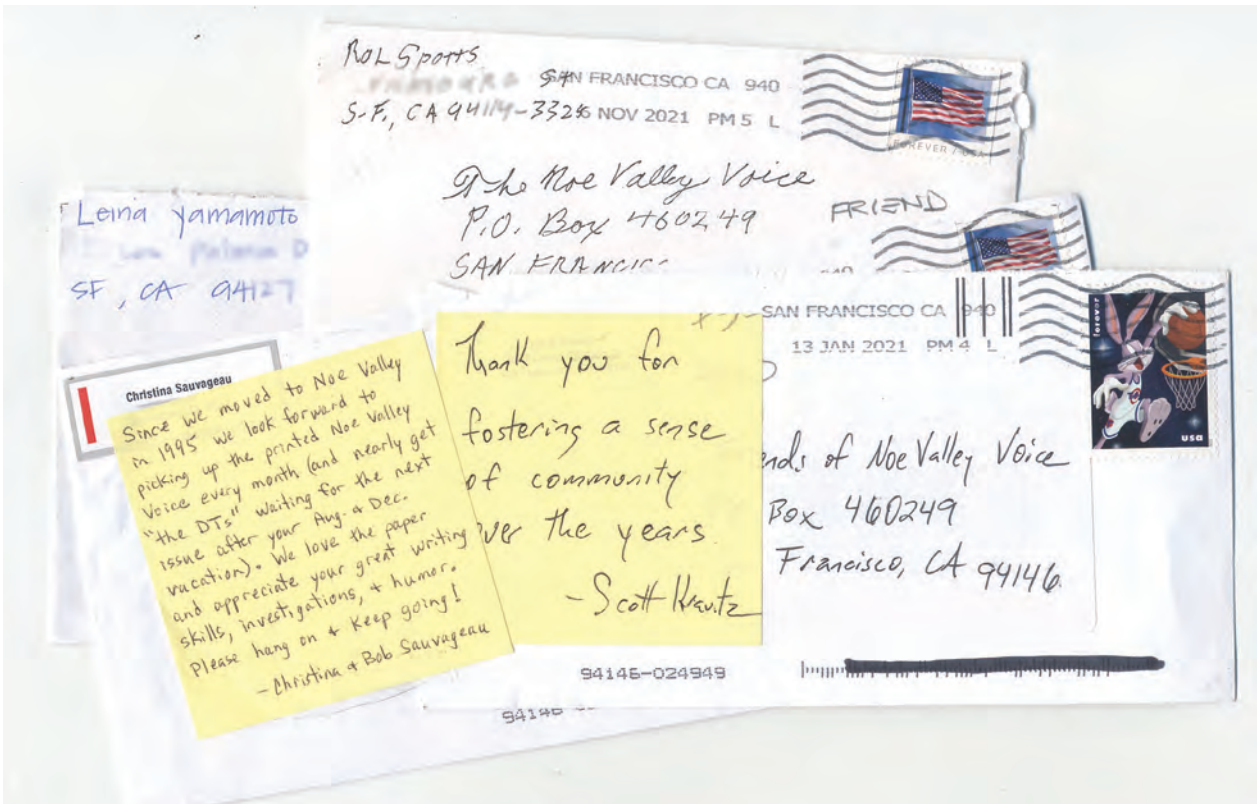 ROL Sports
SAN FRANCISCO CA 940
S.F., CA 94114-3326 NOV 2021 PM 5 L
FOREVER / USA
The Noe Valley Voice
P.O. Box 460249
SAN FRANCIS
FRIEND
Leina Yamamoto
SF, CA 94127
SAN FRANCISCO CA 940
13 JAN 2021 PM 4 L
forever
usa
Christina Sauvageau
Since we moved to Noe Valley
in 1995 we look forward to
picking up the printed Noe Valley
Voice every month (and nearly get
"the DTs" waiting for the next
issue after your Aug. & Dec.
vacation). We love the paper
and appreciate your great writing
skills, investigations, + humor.
Please hang on + keep going!
- Christina & Bob Sauvageau
Thank you for
fostering a sense
of community
over the years.
- Scott Kravitz
ends of Noe Valley Voice
Box 460249
Francisco, CA 94146
94146-024949
94146